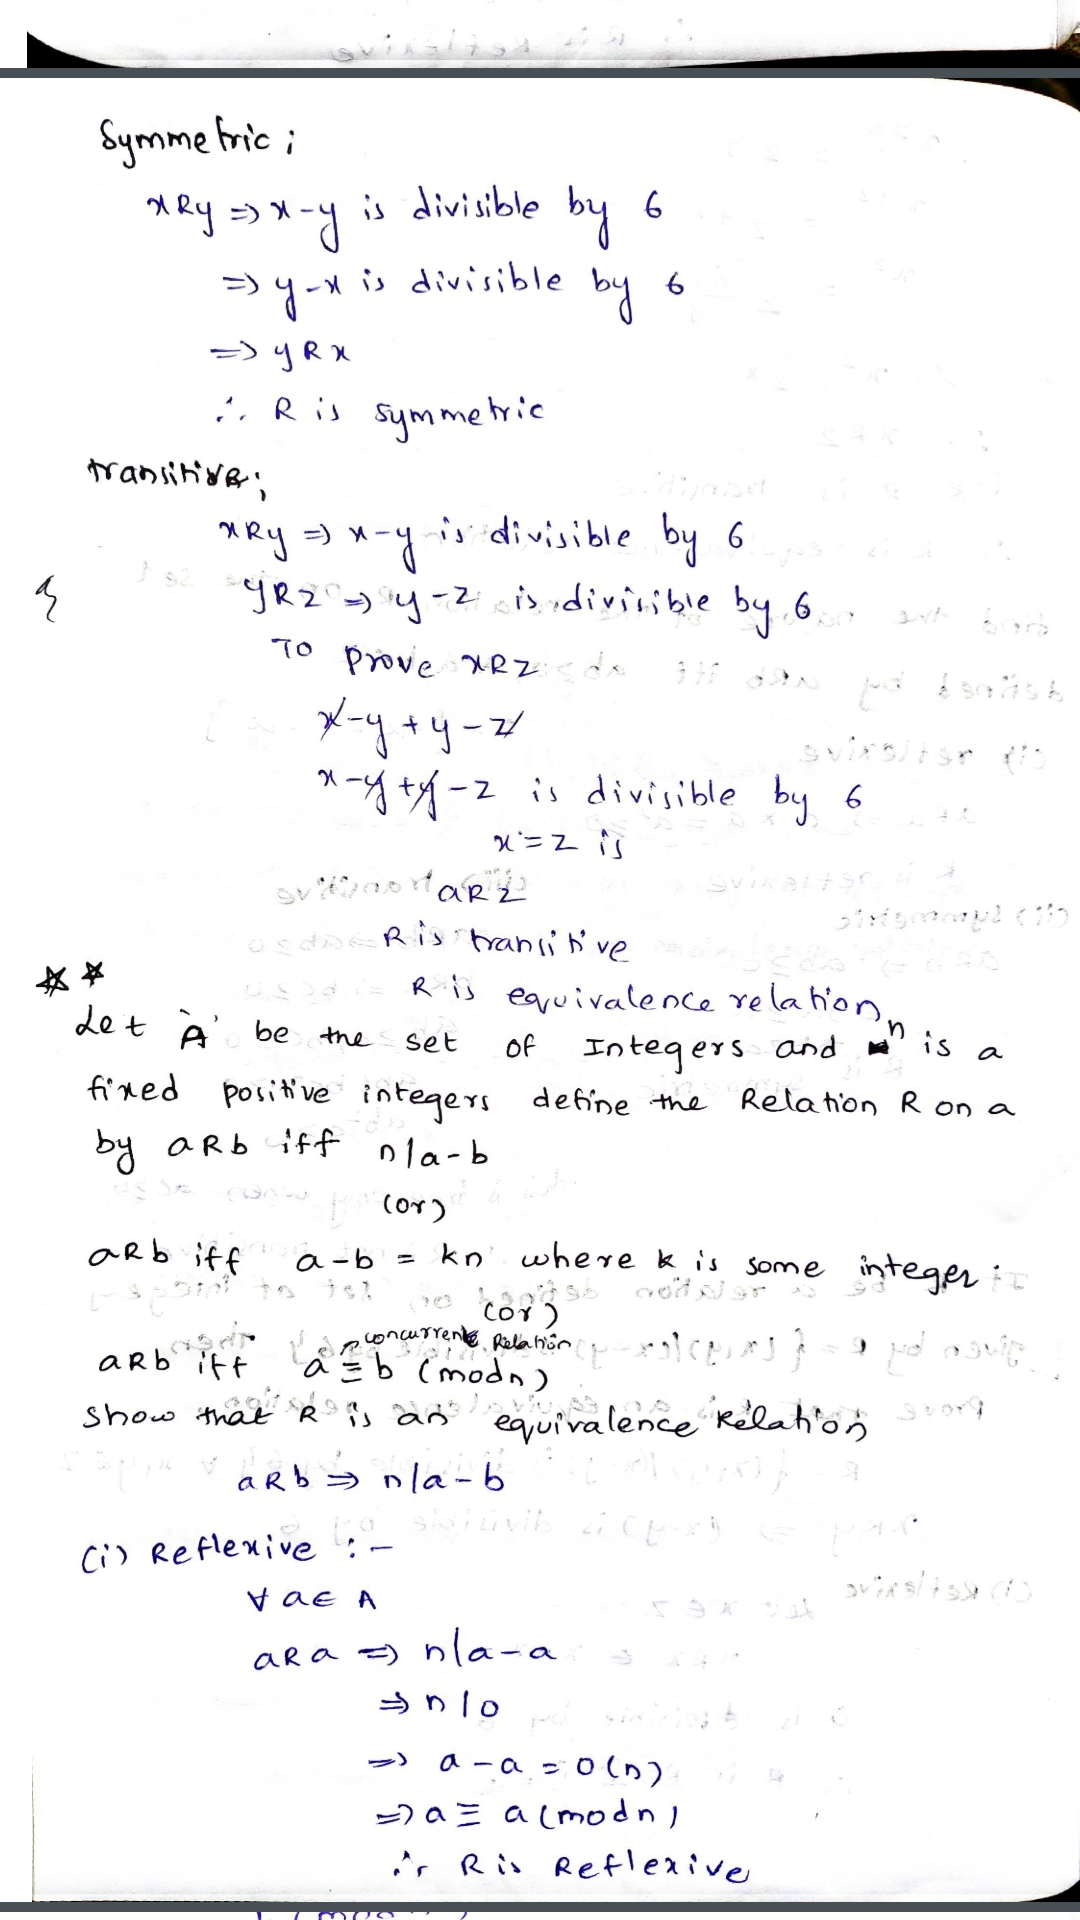 Symmetric ;
xRy => x-y is divisible by 6
=> y-x is divisible by 6
=> yRx
∴ R is symmetric
transitive ;
xRy => x-y is divisible by 6
yRz => y-z is divisible by 6
To prove xRz
x-y+y-z
x-y+y-z is divisible by 6
x-z is
aRz
R is transitive
R is equivalence relation
Let 'A' be the set of Integers and n is a
fixed positive integers define the Relation R on a
by aRb iff n/a-b
(or)
aRb iff a-b = kn where k is some integer ;
(or)
concurrent Relation
aRb iff a ≡ b (mod n)
Show that R is an equivalence Relation
aRb => n/a-b
(i) Reflexive :-
∀ a ∈ A
aRa => n/a-a
=> n/0
=> a-a = 0(n)
=> a ≡ a (mod n)
∴ R is Reflexive